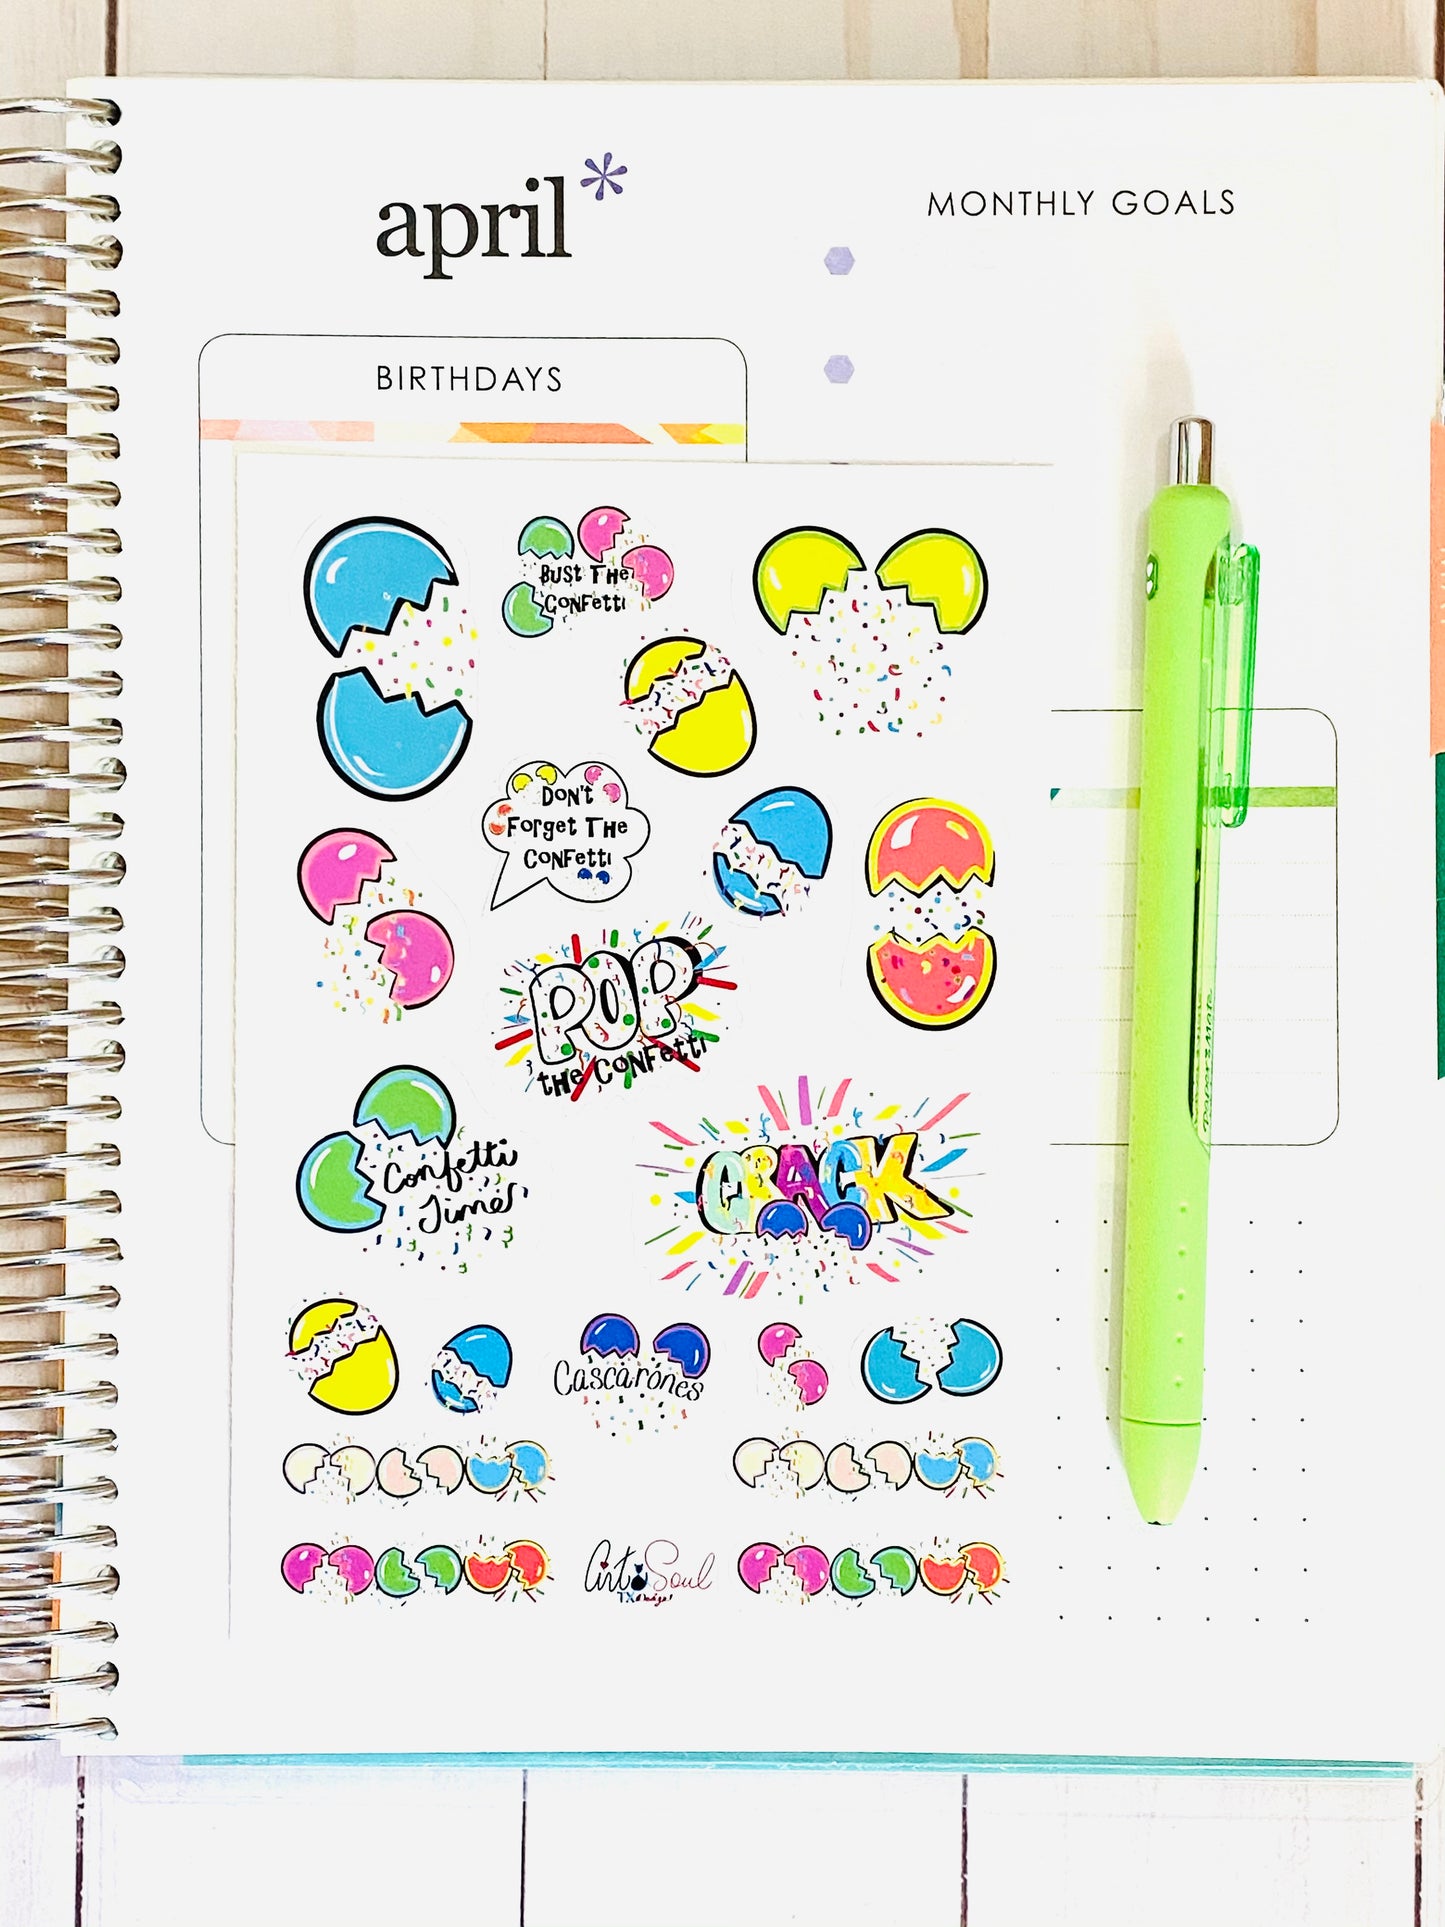 april*
MONTHLY GOALS
BIRTHDAYS
BUST THE
CONFETTI
DON'T
FORGET THE
CONFETTI
POP
THE CONFETTI
Confetti
Time
CRACK
Cascarones
Art Soul
TX
PAPER MATE